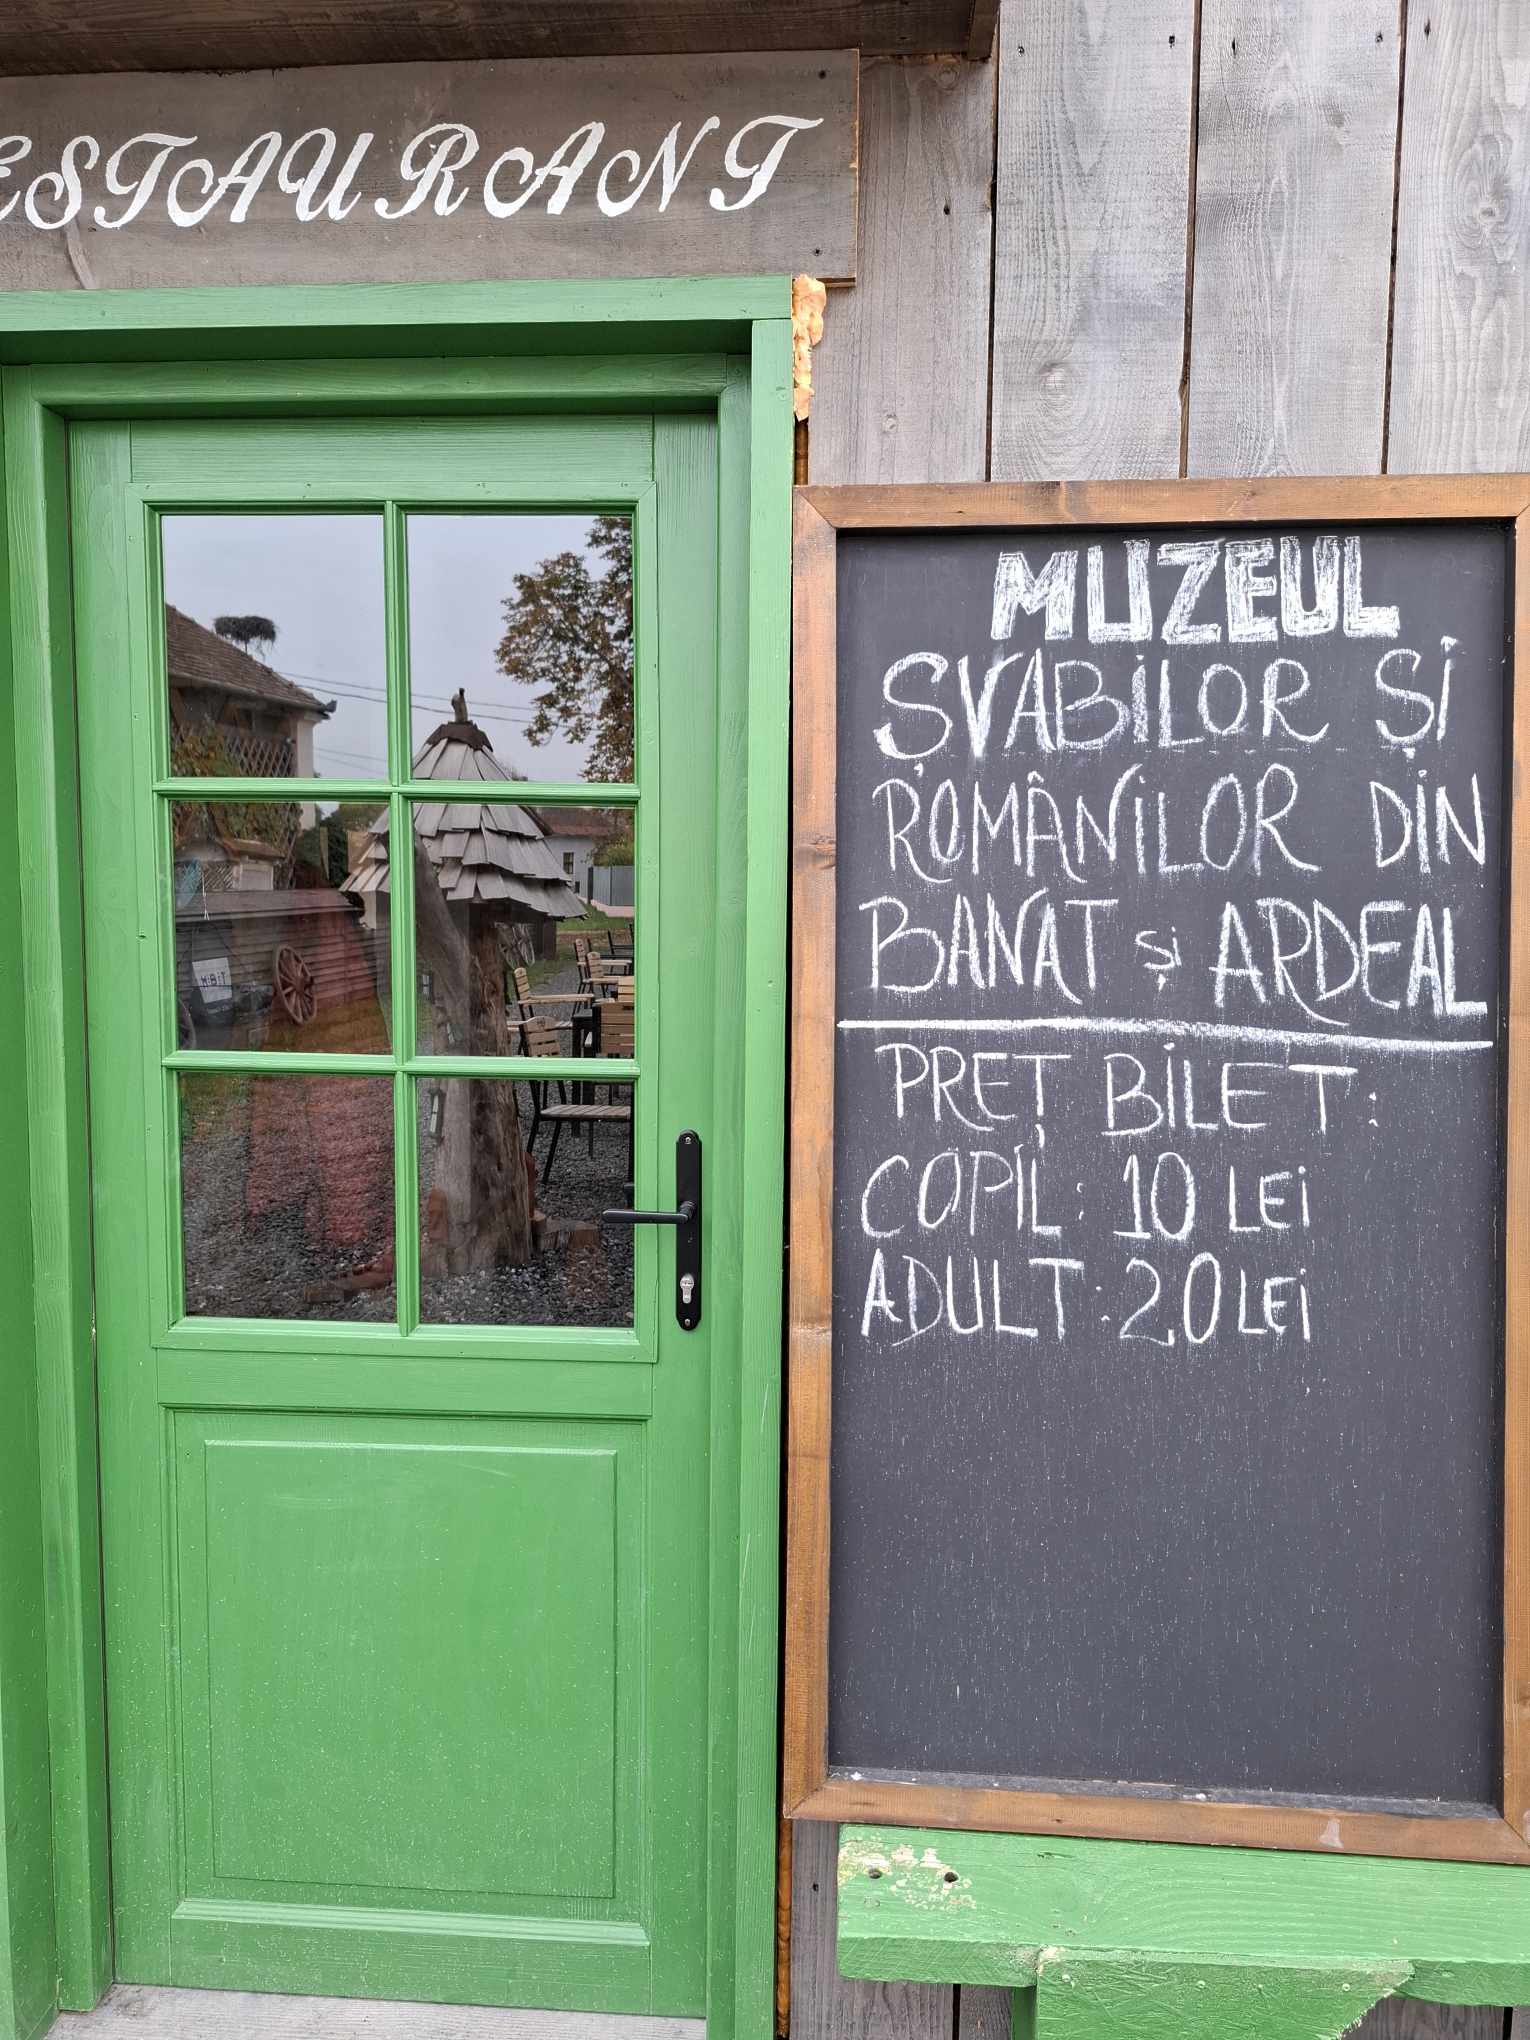 ESTAURANT
MUZEUL
ȘVABILOR ȘI
ROMÂNILOR DIN
BANAT ȘI ARDEAL
PREȚ BILET:
COPIL: 10 LEI
ADULT: 20 LEI